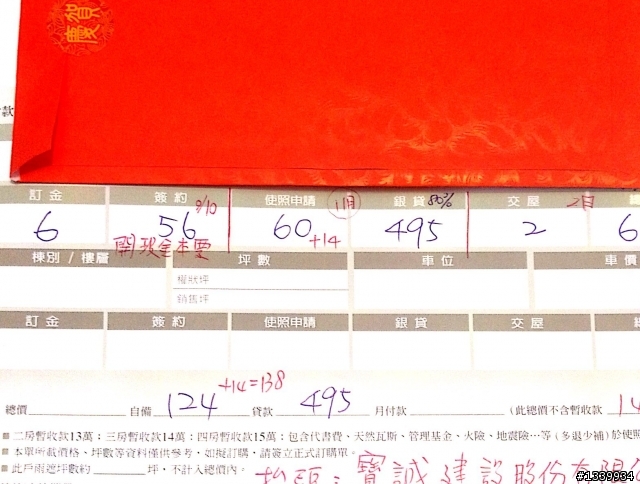 慶賀
款
訂金 簽約 9/10 使照申請 11月 銀貸 80% 交屋 2月
6 56 60 +14 495 2 6
開現金本票
棟別 / 樓層 坪數 車位 車價
權狀坪
銷售坪
訂金 簽約 使照申請 銀貸 交屋
總價 自備 124 +14=138 貸款 495 月付款 (此總價不含暫收款 14
■ 二房暫收款13萬；三房暫收款14萬；四房暫收款15萬；包含代書費、天然瓦斯、管理基金、火險、地震險…等 (多退少補) 於使照
■ 本單所載價格、坪數等資料僅供參考，如擬訂購，請簽立正式訂購單。
■ 此戶雨遮坪數約 坪，不計入總價內。
抬頭：寶誠建設股份有限
#1369934